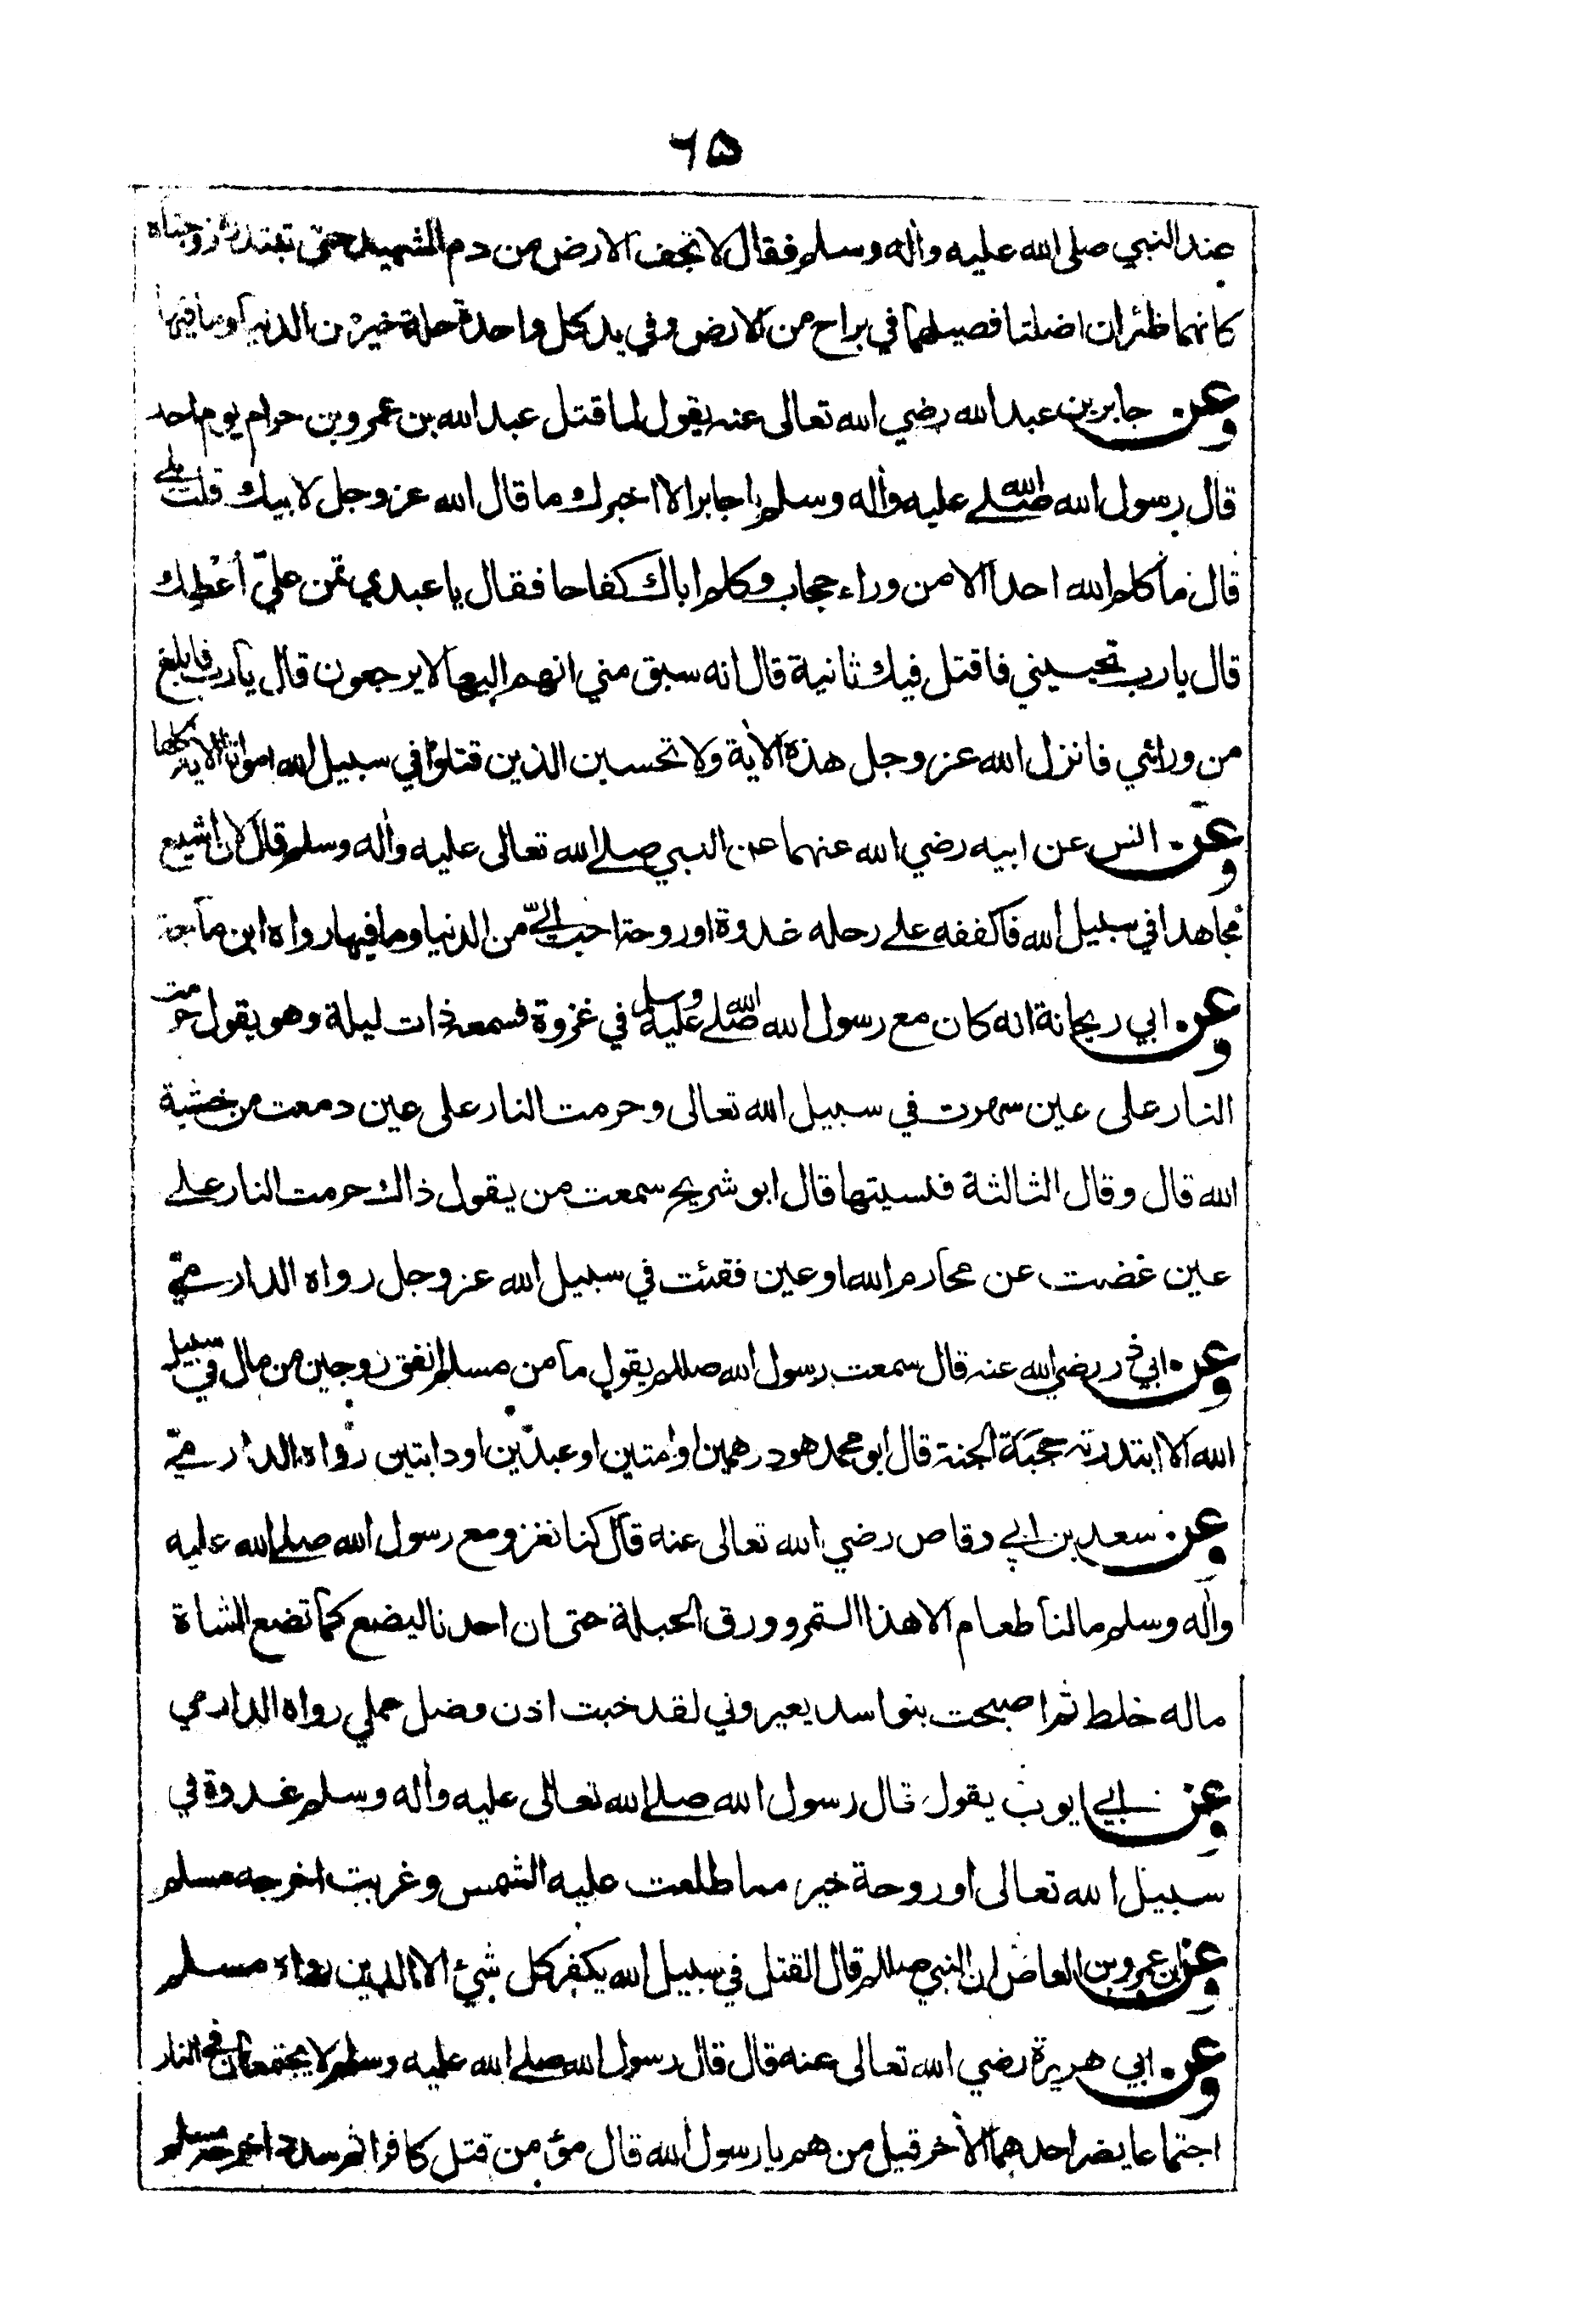 ٦٥
عند النبي صلى الله عليه وأله وسلم فقال لا تجف الارض من دم الشهيد حتى تبتدره زوجتاه
كانهما ظئران اضلتا فصيلهما في براح من الارض وفي يد كل واحدة حلة خير من الدنيا وما فيها
وعن جابر بن عبد الله رضي الله تعالى عنه يقول لما قتل عبد الله بن عمرو بن حرام يوم احد
قال رسول الله صلى الله عليه وأله وسلم يا جابر الا اخبرك ما قال الله عز وجل لابيك قلت بلى
قال ما كلم الله احدا الا من وراء حجاب وكلم اباك كفاحا فقال يا عبدي تمن علي أعطك
قال يا رب تحييني فاقتل فيك ثانية قال انه سبق مني انهم اليها لا يرجعون قال يا رب فابلغ
من ورائي فانزل الله عز وجل هذه الأية ولا تحسبن الذين قتلوا في سبيل الله امواتا الاية كلها
وعن انس عن ابيه رضي الله عنهما عن النبي صلى الله تعالى عليه وأله وسلم قال لان اشيع
مجاهدا في سبيل الله فاكففه على رحله غدوة او روحة احب الي من الدنيا وما فيها رواه ابن ماجة
وعن ابي ريحانة انه كان مع رسول الله صلى الله عليه وسلم في غزوة فسمعه ذات ليلة وهو يقول حرمت
النار على عين سهرت في سبيل الله تعالى وحرمت النار على عين دمعت من خشية
الله قال وقال الثالثة فنسيتها قال ابو شريح سمعت من يقول ذاك حرمت النار على
عين غضت عن محارم الله او عين فقئت في سبيل الله عز وجل رواه الدارمي
وعن ابي ذر رضي الله عنه قال سمعت رسول الله صللم يقول ما من مسلم انفق زوجين من مال في سبيل
الله الا ابتدرته حجبة الجنة قال ابو محمد هو درهمين او امتين او عبدين او دابتين رواه الدارمي
وعن سعد بن ابي وقاص رضي الله تعالى عنه قال كنا نغزو مع رسول الله صلى الله عليه
وأله وسلم ما لنا طعام الا هذا التمر وورق الحبلة حتى ان احدنا ليضع كما تضع الشاة
ماله خلط ثم اصبحت بنو اسد يعيروني لقد خبت اذن وضل عملي رواه الدارمي
وعن ابي ايوب يقول قال رسول الله صلى الله تعالى عليه وأله وسلم غدوة في
سبيل الله تعالى او روحة خير مما طلعت عليه الشمس وغربت اخرجه مسلم
وعن ابن عمرو بن العاص ان النبي صللم قال القتل في سبيل الله يكفر كل شئ الا الدين رواه مسلم
وعن ابي هريرة رضي الله تعالى عنه قال قال رسول الله صلى الله عليه وسلم لا يجتمعان في النار
اجتماعا يضر احدهما الأخر قيل من هم يا رسول الله قال مؤمن قتل كافرا ثم سدد اخرجه مسلم